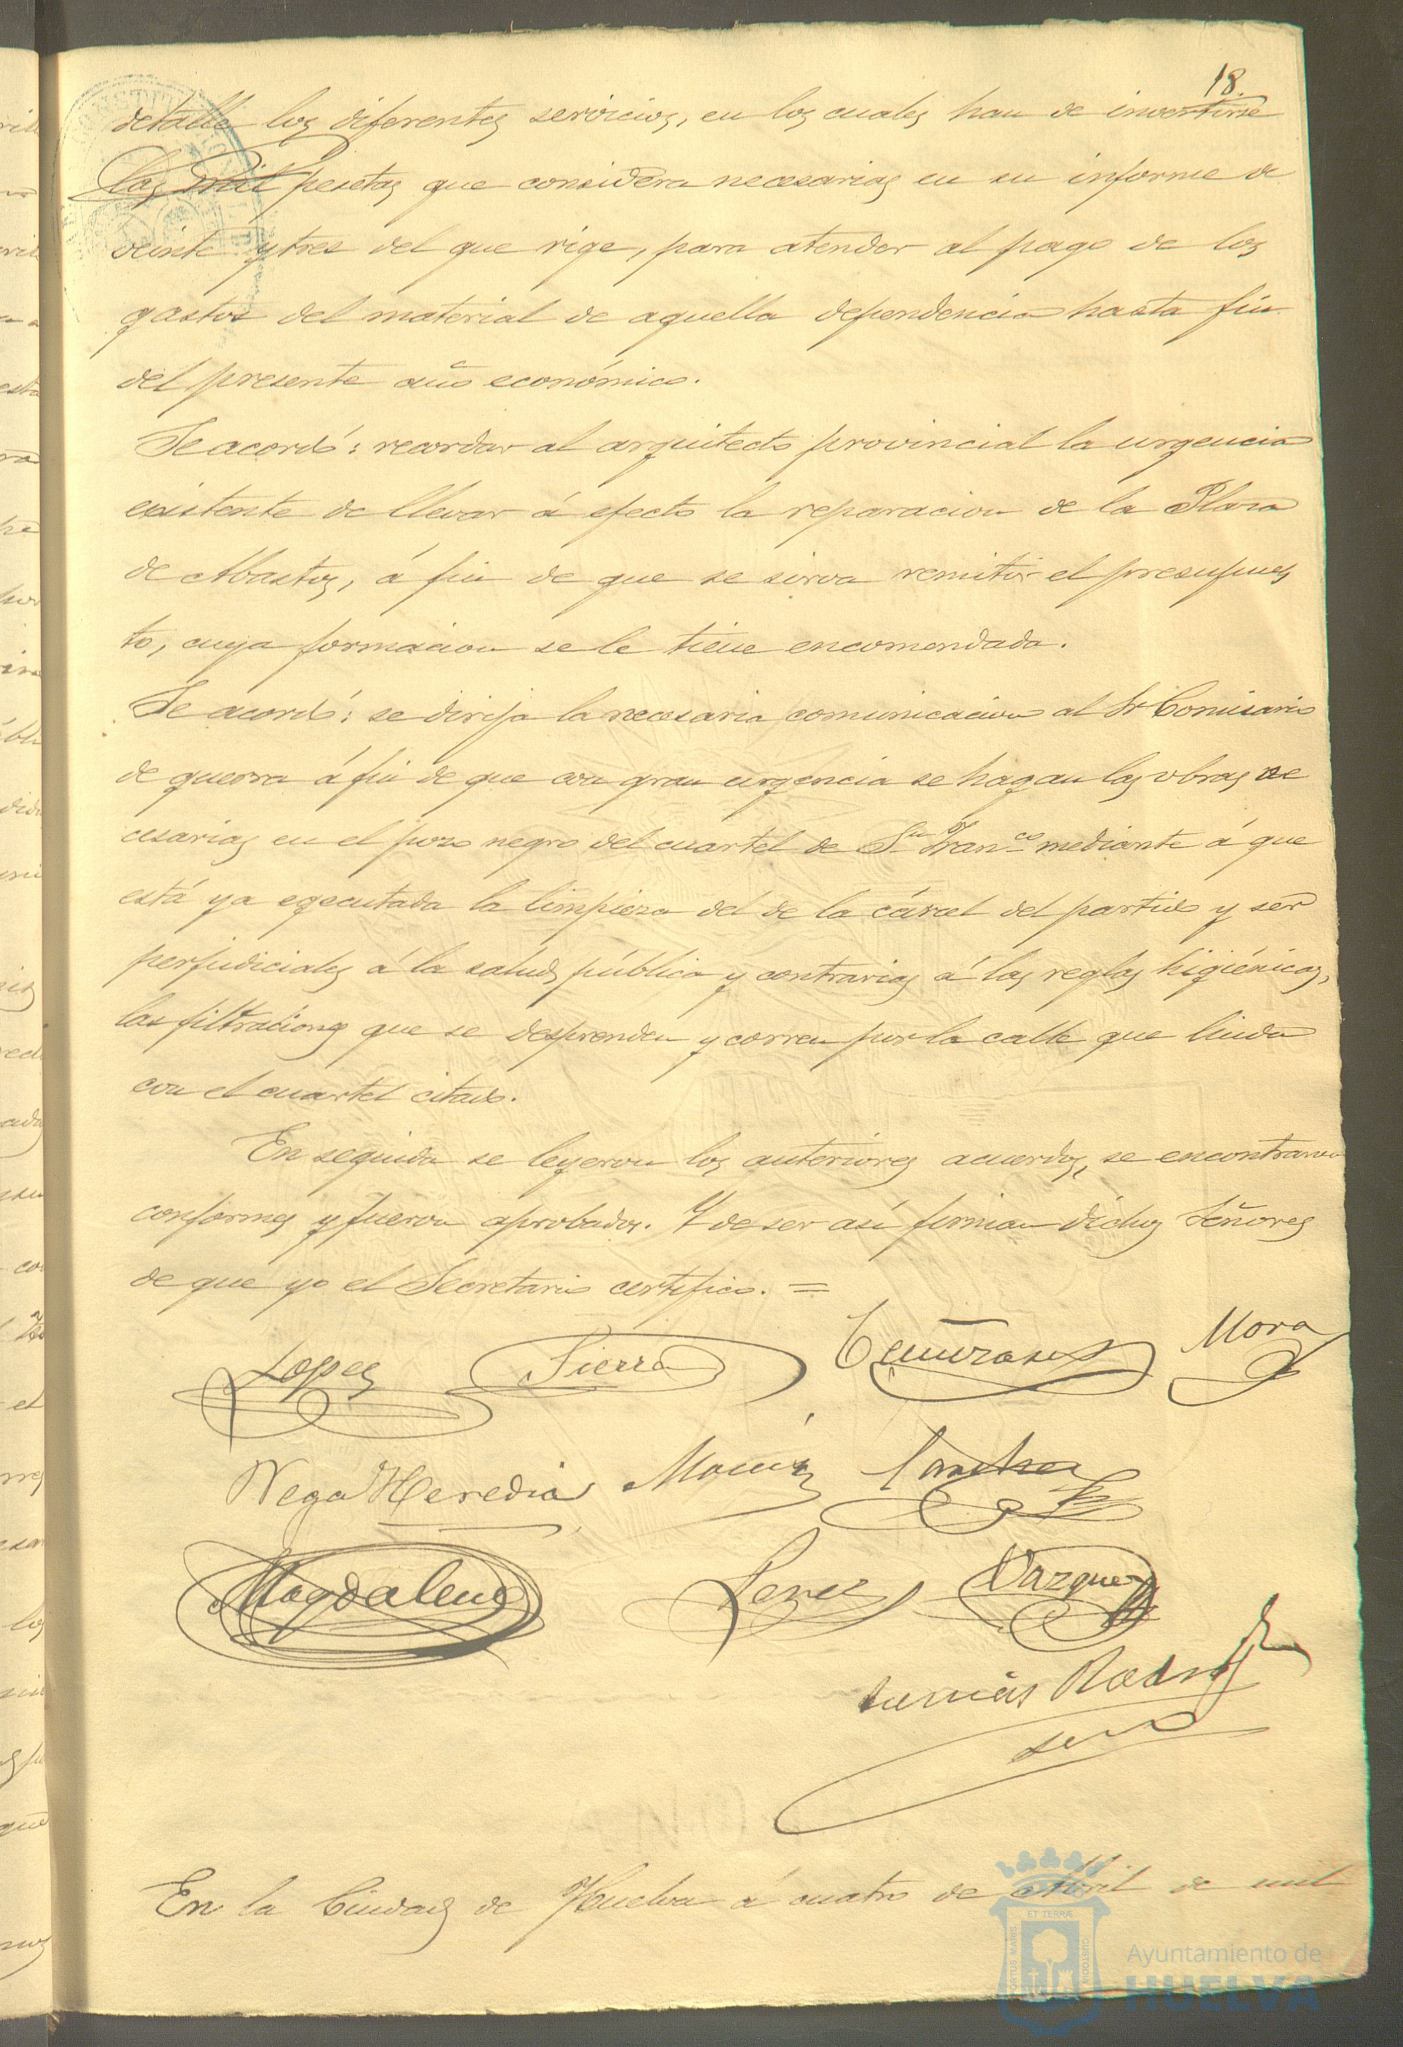 18.
detalle los diferentes servicios, en los cuales han de invertirse
las mil pesetas que considera necesarias en su informe de
veinte y tres del que rige, para atender al pago de los
gastos del material de aquella dependencia hasta fin
del presente año económico.
Se acordó: recordar al arquitecto provincial la urgencia
existente de llevar á efecto la reparacion de la Plaza
de Abastos, á fin de que se sirva remitir el presupues
to, cuya formacion se le tiene encomendada.
Se acordó: se dirija la necesaria comunicacion al Sr Comisario
de guerra á fin de que con gran urgencia se hagan las obras ne
cesarias en el pozo negro del cuartel de Sn Franco mediante á que
está ya egecutada la limpieza del de la cárcel del partido y ser
perjudiciales á la salud pública y contrarias á las reglas higiénicas,
las filtraciones que se desprenden y corren por la calle que linda
con el cuartel citado.
En seguida se leyeron los anteriores acuerdos, se encontraron
conformes y fueron aprobados. Y de ser así firman dichos Señores
de que yo el Secretario certifico. =
Lopez Sierra Mora
Vega Heredia Macías Sanchez
Magdalena Perez Vazquez
En la Ciudad de Huelva á cuatro de Abril de mil
PORTUS MARIS ET TERRÆ CUSTODIA
Ayuntamiento de
HUELVA